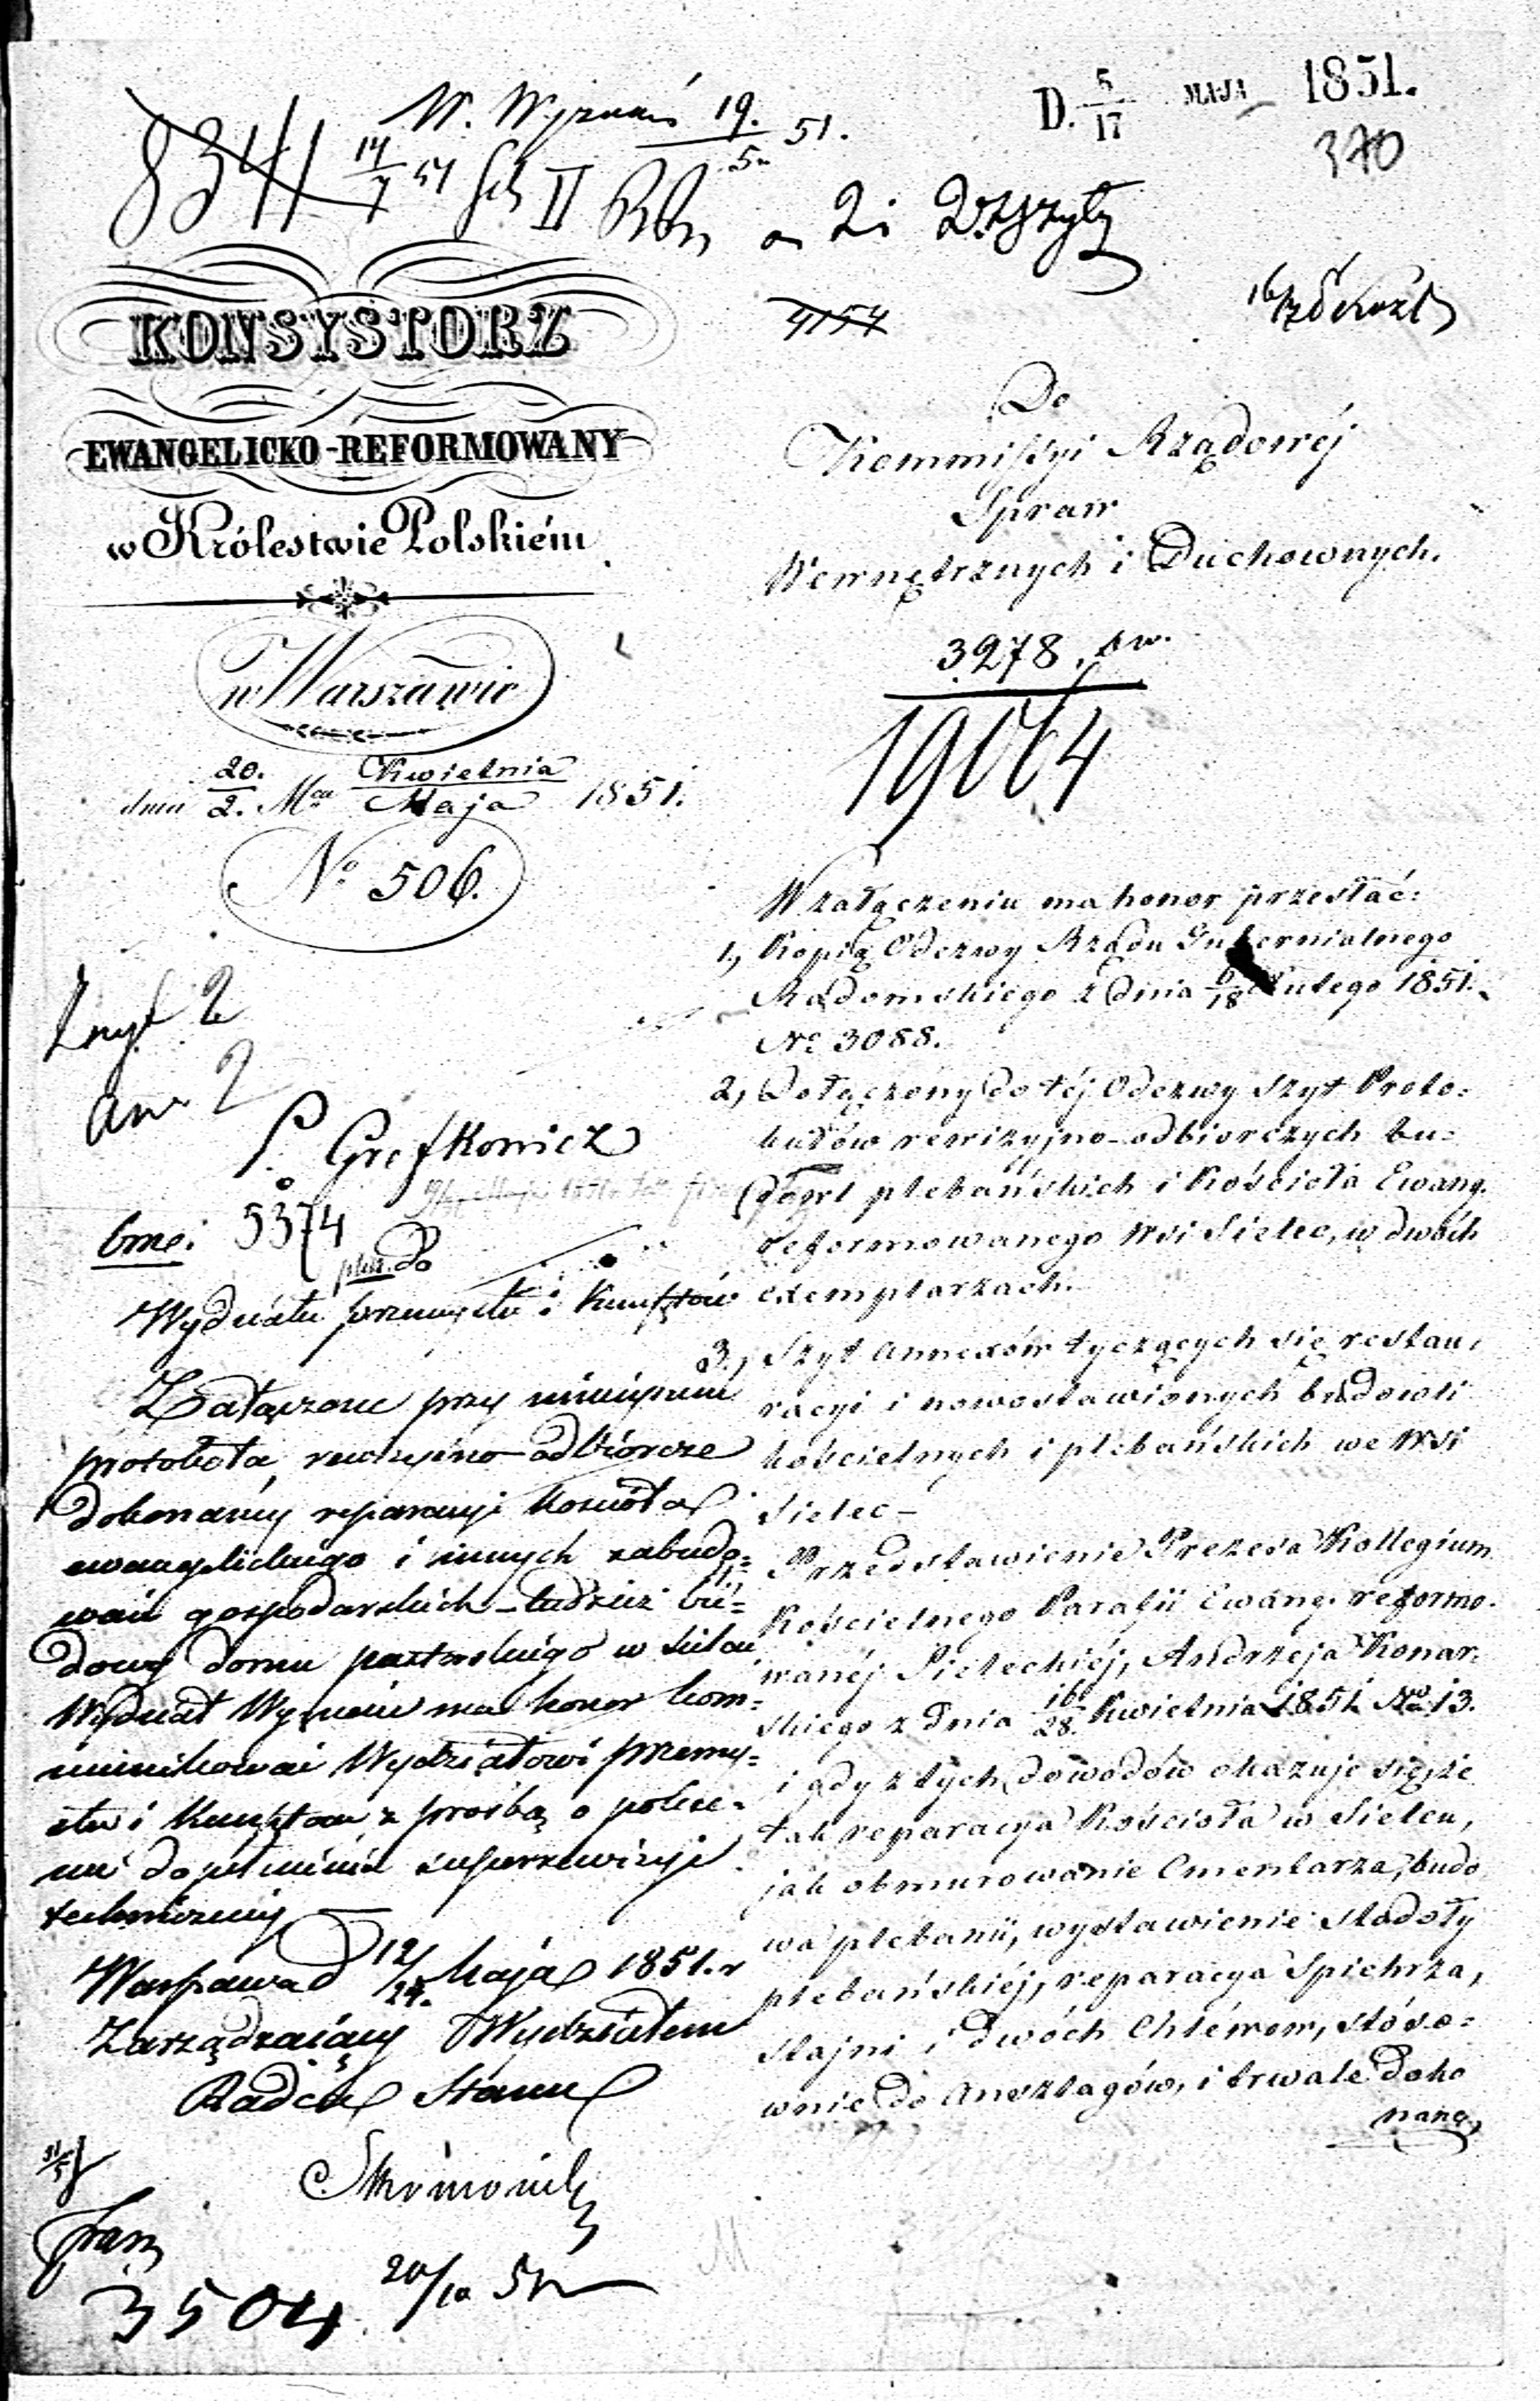 W. Wyznań 19. 51.
5.
D. 5/17 MAJA 1851.
370
8341 14/7 51 II
2 Zszyty
4154
KONSYSTORZ
EWANGELICKO-REFORMOWANY
w Królestwie Polskiém
w Warszawie
dnia 20./2. Mca Kwietnia/Maja 1851.
No 506.
Do
Kommissyi Rządowéj
Spraw
Wewnętrznych i Duchownych.
3278.
19064
W załączeniu ma honor przesłać:
1., Kopią Odezwy Rządu Gubernialnego
Radomskiego z dnia 6/18 Lutego 1851.
No 3088.
2, Dołączony do téj Odezwy Szyt Proto=
kułów rewizyjno-odbiorczych bu=
dowl plebańskich i Kościoła Ewang.
reformowanego Wsi Sielec, w dwóch
exemplarzach.
3., Szyt annexów tyczących się restau,
racyi i nowostawionych budowli
kościelnych i plebańskich we Wsi
Sielec -
Przedstawienie Prezesa Kollegium
Kościelnego Parafii Ewang. reformo-
wanéj Sieleckiéj, Andrzeja Konar-
skiego z dnia 16/28. Kwietnia 1851 No 13.
i gdy z tych dowodów okazuje się, że
tak reparacya Kościoła w Sielcu,
jak obmurowanie Cmentarza, budo
wa plebanii, wystawienie stodoły
plebańskiéj, reparacya Spichrza,
stajni i dwóch Chléwow, stóso=
wnie do anszlagów, i trwale doko
naną,
2
an 2
P. Grefkowicz
5374
do
Wydziału przemysłu i Kunsztów
Załączone przy niniejszem
protokoła rewizyjno-odbiorcze
dokonanéj reparacyi kościoła
ewangelickiego i innych zabudo=
wań gospodarskich - tudzież bu=
dowy domu pastorskiego w Sielcu
Wydział Wyznań ma honor kom=
munikować Wydziałowi przemy=
słu i Kunsztów z prośbą o polece=
nie dopełnienia superrewizyi
technicznéj
Warszawa d 12/24. Maja 1851. r
Zarządzaiący Wydziałem
Radca Stanu
3504 20/10 51